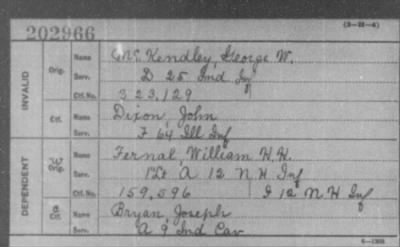 (3-22-4)
202966
INVALID
Orig.
Name McKendley, George W.
Serv. D 25 Ind Inf
Ctf. No. 323,129
Ctf.
Name Dixon, John
Serv. F 64 Ill Inf
DEPENDENT
W Orig.
Name Fernal, William H.H.
Serv. 1"Lt A 12 N H Inf
Ctf. No. 159,596 I 12 N H Inf
Ctf.
Name Bryan, Joseph
Serv. A 9 Ind Cav